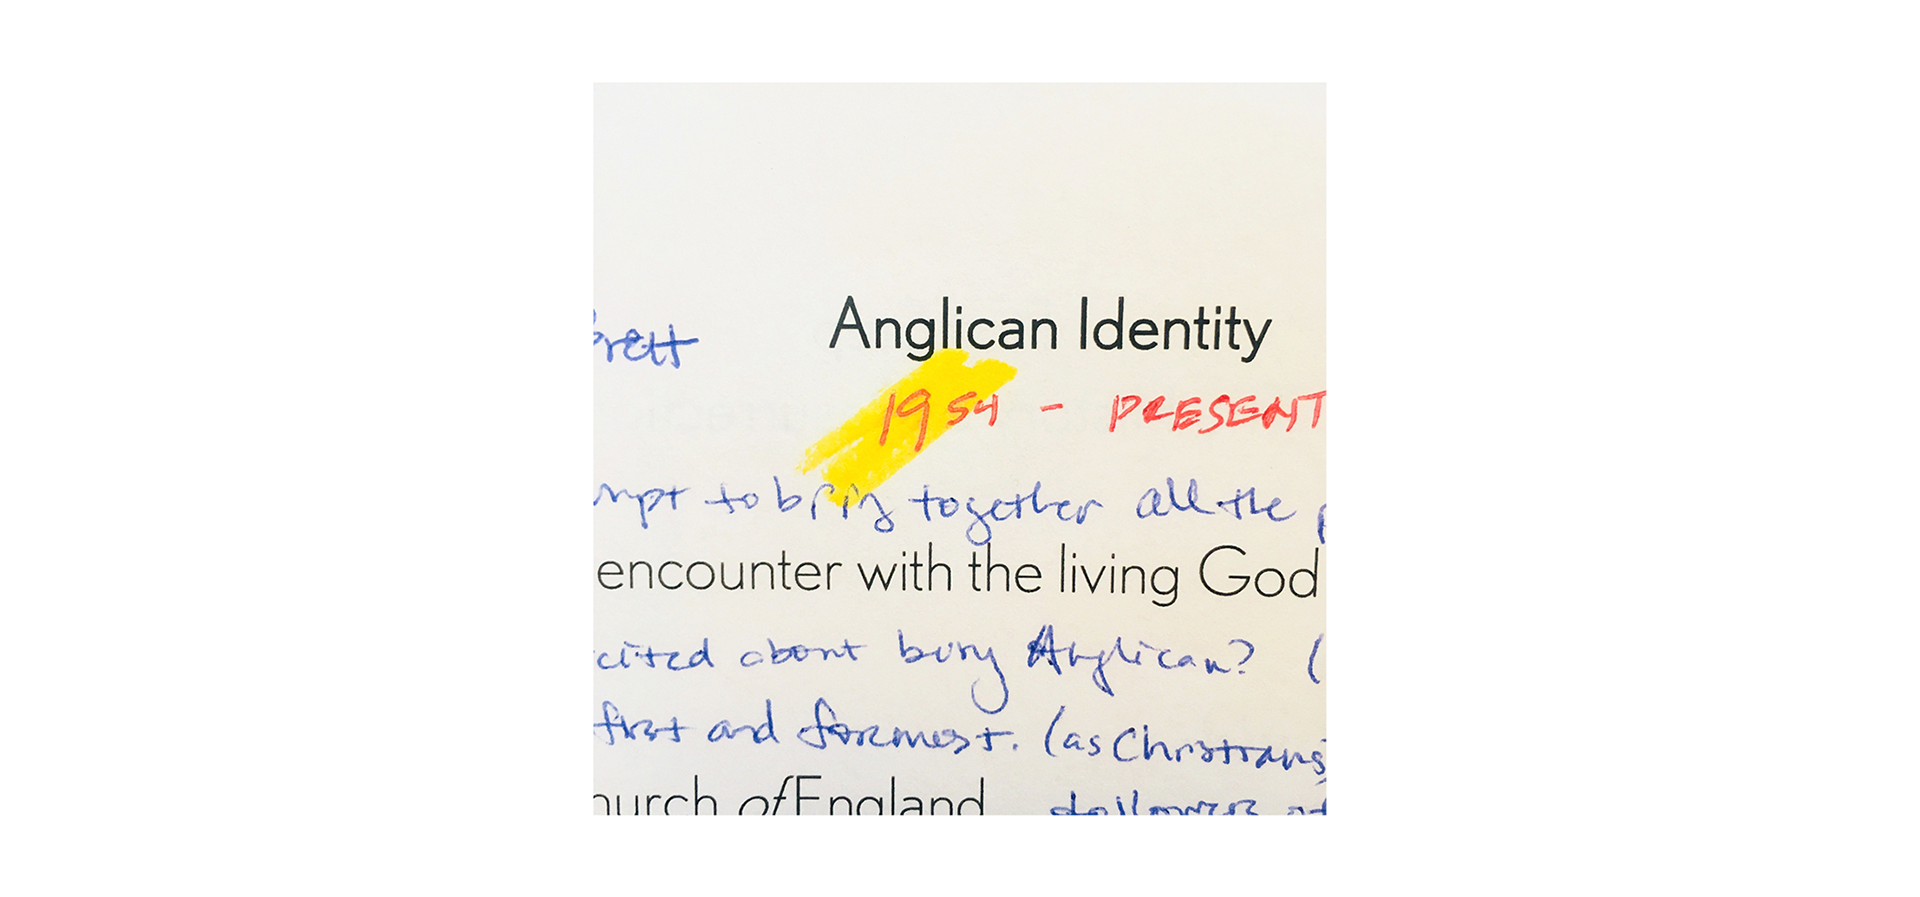 Brett Anglican Identity
1954 - PRESENT
mpt to bring together all the
encounter with the living God
cited about being Anglican? (
first and foremost. (as Christians
hurch of England followers of